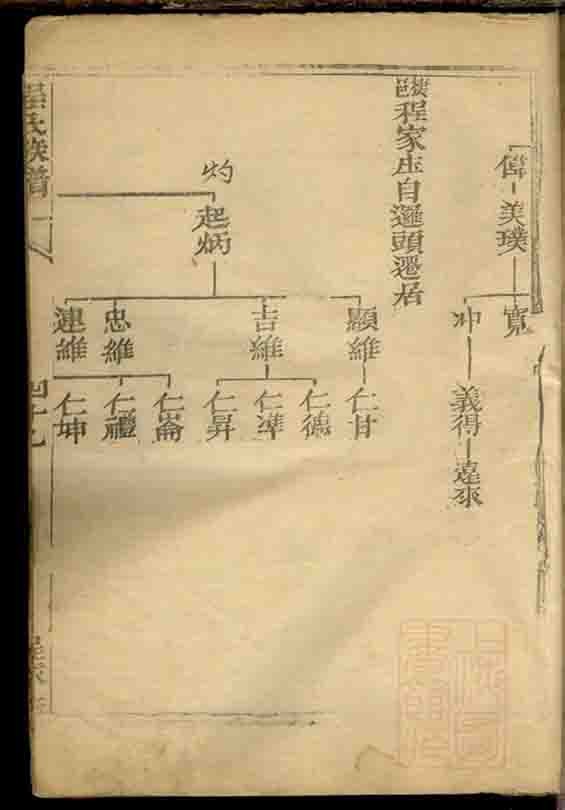 偉 美璞
寬
冲 義得 遠來
程家庄自邏頭遷居
灼
起炳
顯維 仁甘
吉維
仁德
仁準
仁昇
忠維
連維
仁崙
仁禮
仁坤
吳氏族譜